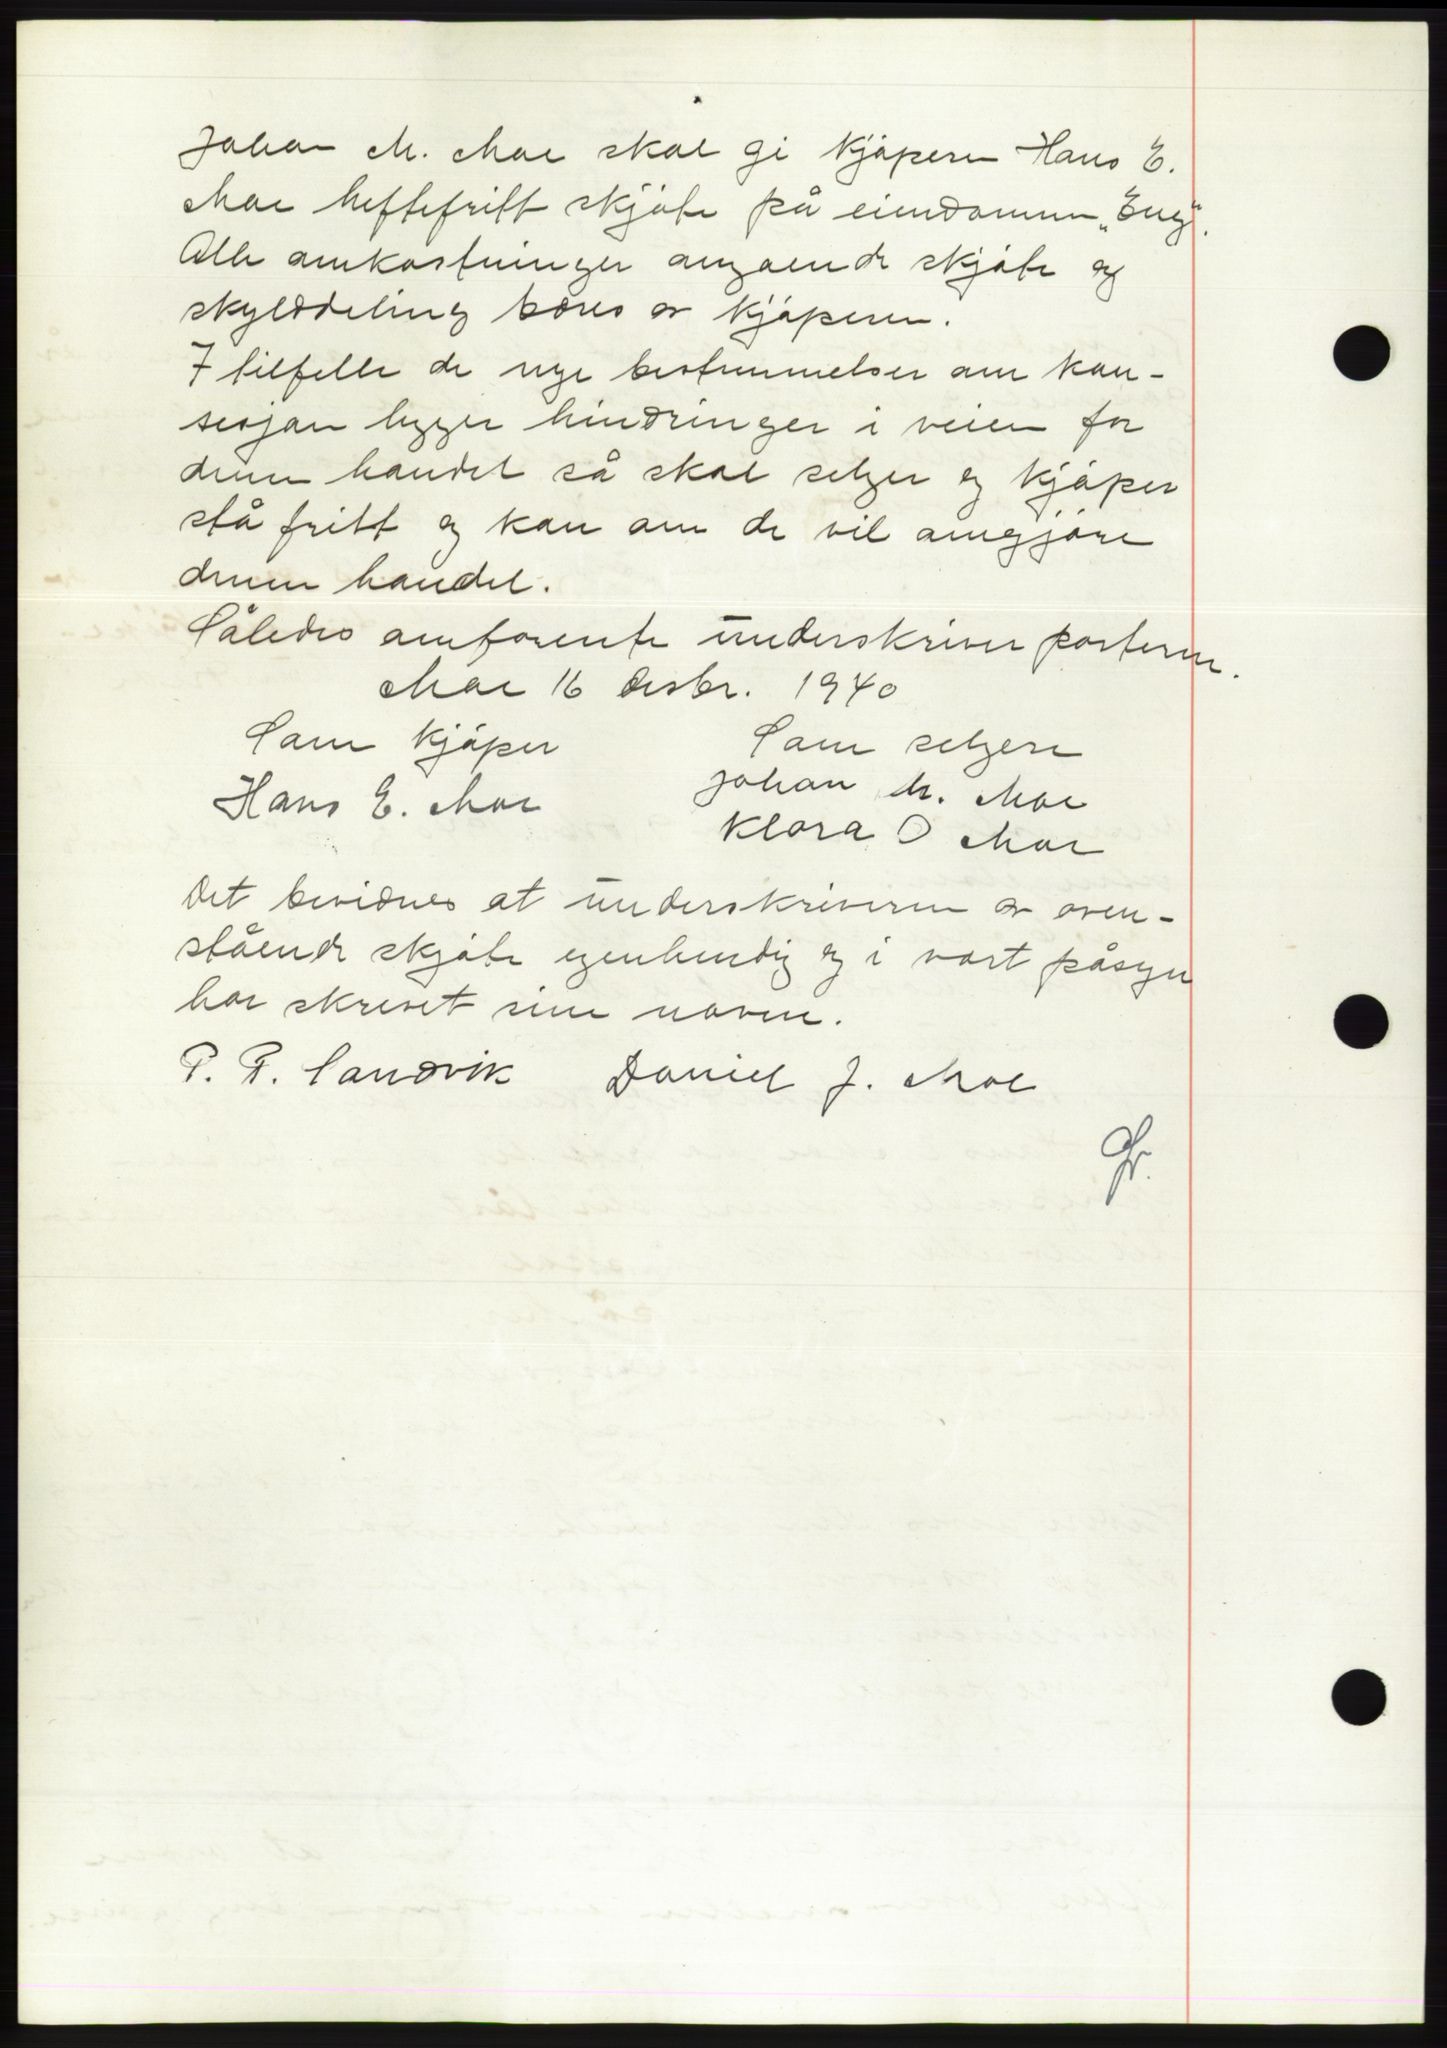 Johan M. Moe skal gi kjøperen Hans E.
Moe heftefritt skjøte på eiendommen „Eng“.
Alle omkostninger angående skjøte og
skylddeling bæres av kjøperen.
I tilfelle de nye bestemmelser om kon-
sesjon legger hindringer i veien for
denne handel så skal selger og kjøper
stå fritt og kan om de vil omgjøre
denne handel.
Således omforente underskriver partene.
Moe 16 desbr. 1940
Som kjøper Som selgere
Hans E. Moe Johan M. Moe
Klara O Moe
Det bevidnes at underskriverne av oven-
stående skjøte egenhendig og i vart påsyn
har skrevet sine navne.
P. P. Sandvik Daniel J. Moe